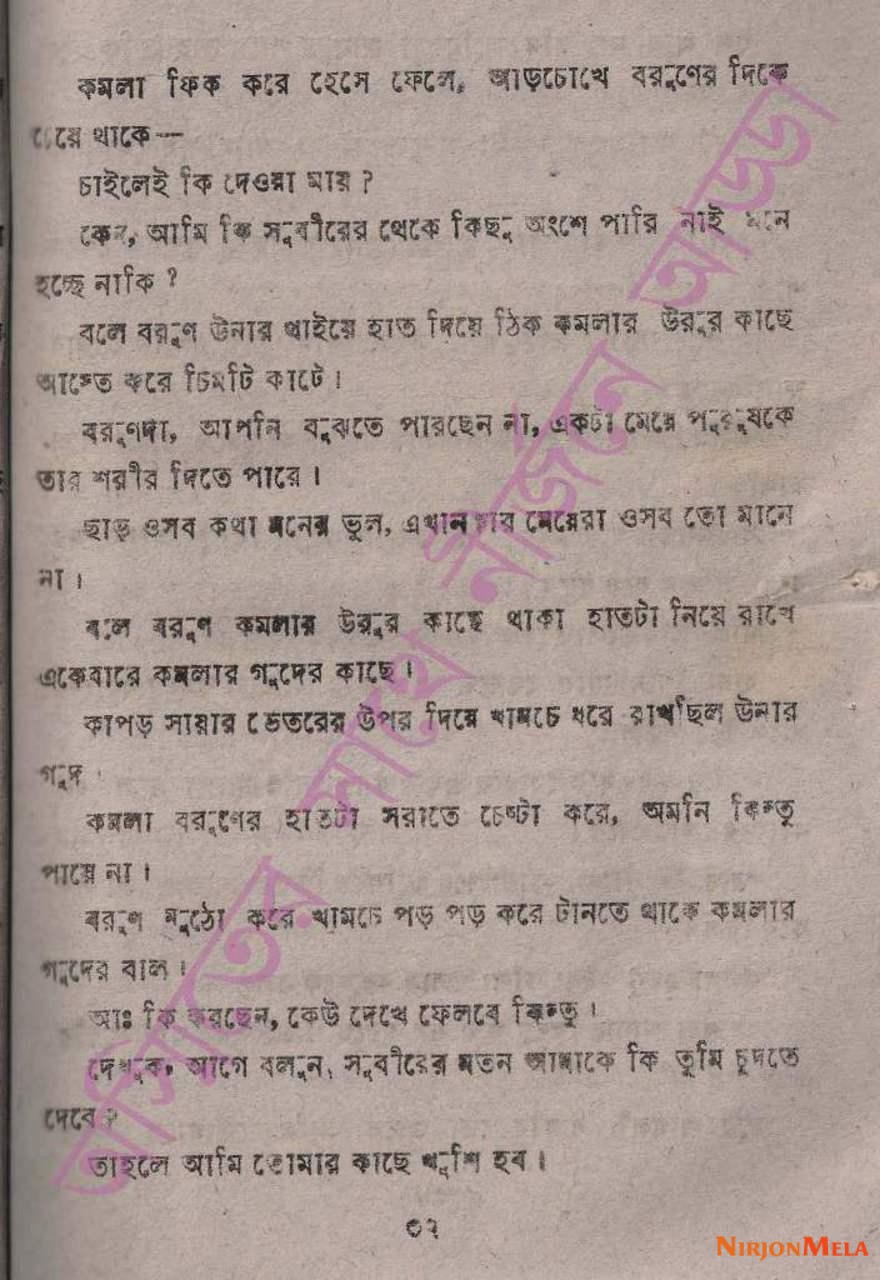 কমলা ফিক করে হেসে ফেলে, আড়চোখে বরুণের দিকে
চেয়ে থাকে—
চাইলেই কি দেওয়া যায় ?
কেন, আমি কি সুবীরের থেকে কিছু অংশে পারি নাই মনে
হচ্ছে নাকি ?
বলে বরুণ উনার থাইয়ে হাত দিয়ে ঠিক কমলার উরুর কাছে
আস্তে করে চিমটি কাটে।
বরুণদা, আপনি বুঝতে পারছেন না, একটা মেয়ে পুরুষকে
তার শরীর দিতে পারে।
ছাড় ওসব কথা মনের ভুল, এখানকার মেয়েরা ওসব তো মানে
না।
বলে বরুণ কমলার উরুর কাছে থাকা হাতটা নিয়ে রাখে
একেবারে কমলার গুদের কাছে।
কাপড় সায়ার ভেতরের উপর দিয়ে খামচে ধরে রাখছিল উনার
গুদ।
কমলা বরুণের হাতটা সরাতে চেষ্টা করে, অমনি কিন্তু
পায়ে না।
বরুণ মুঠো করে খামচে পড় পড় করে টানতে থাকে কমলার
গুদের বাল।
আঃ কি করছেন, কেউ দেখে ফেলবে কিন্তু।
দেখুক, আগে বলুন, সুবীরের মতন আমাকে কি তুমি চুদতে
দেবে ?
তাহলে আমি তোমার কাছে খুশি হব।
৩২
অসিতের সাথে নির্জনে আড্ডা
NIRJONMELA